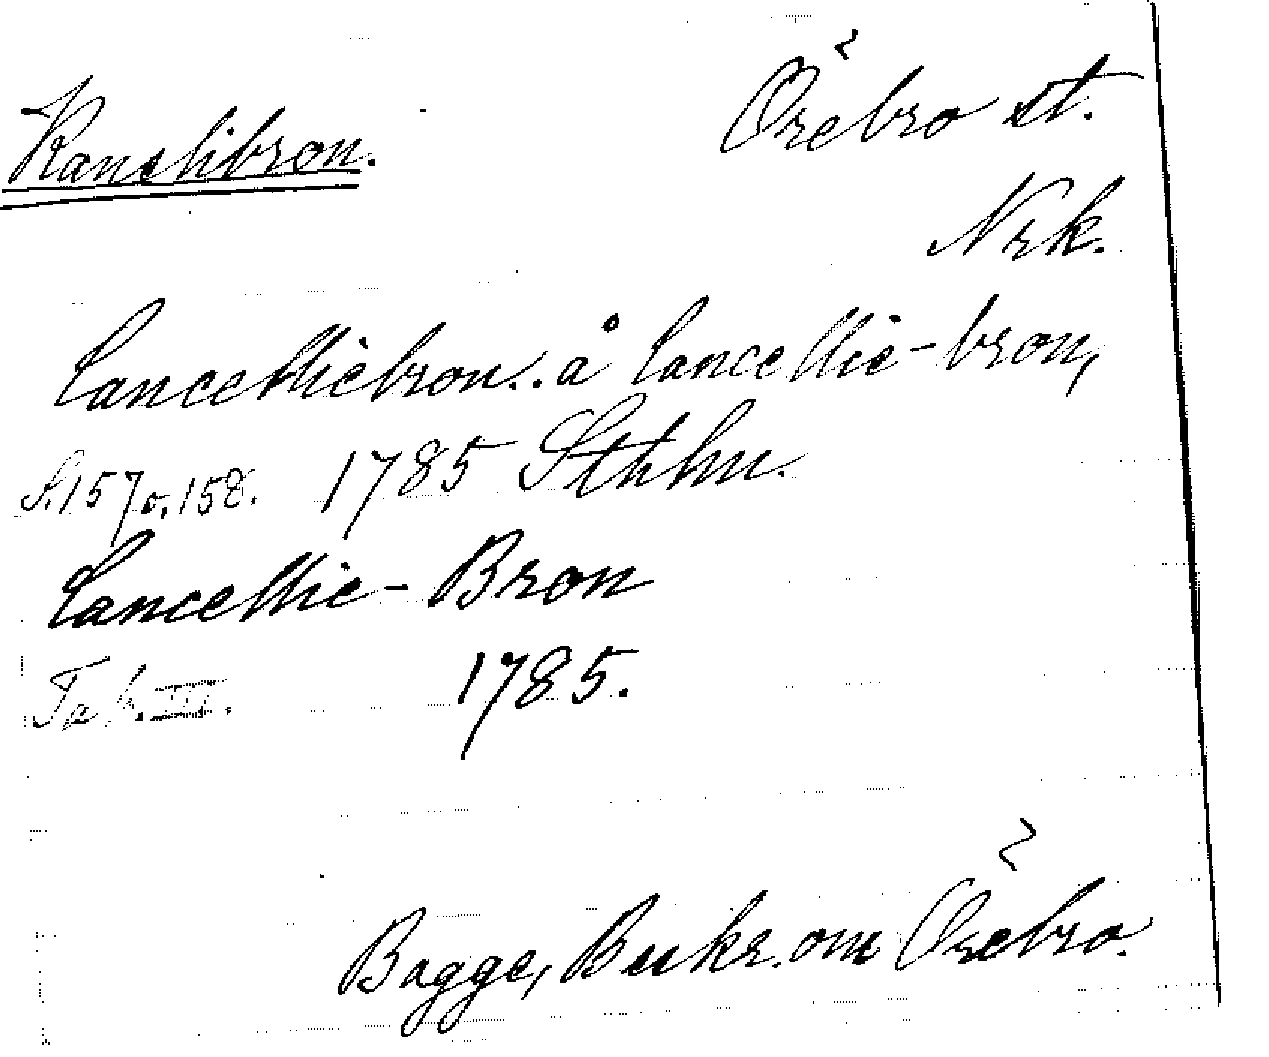 Kanslibron.
Örebro st.
Nrk.
Cancelliebron.. å Cancellie-bron,
S. 157 o. 158. 1785 Sthlm.
Cancellie-Bron
Tab. III. 1785.
Bagge, Beskr. om Örebro.